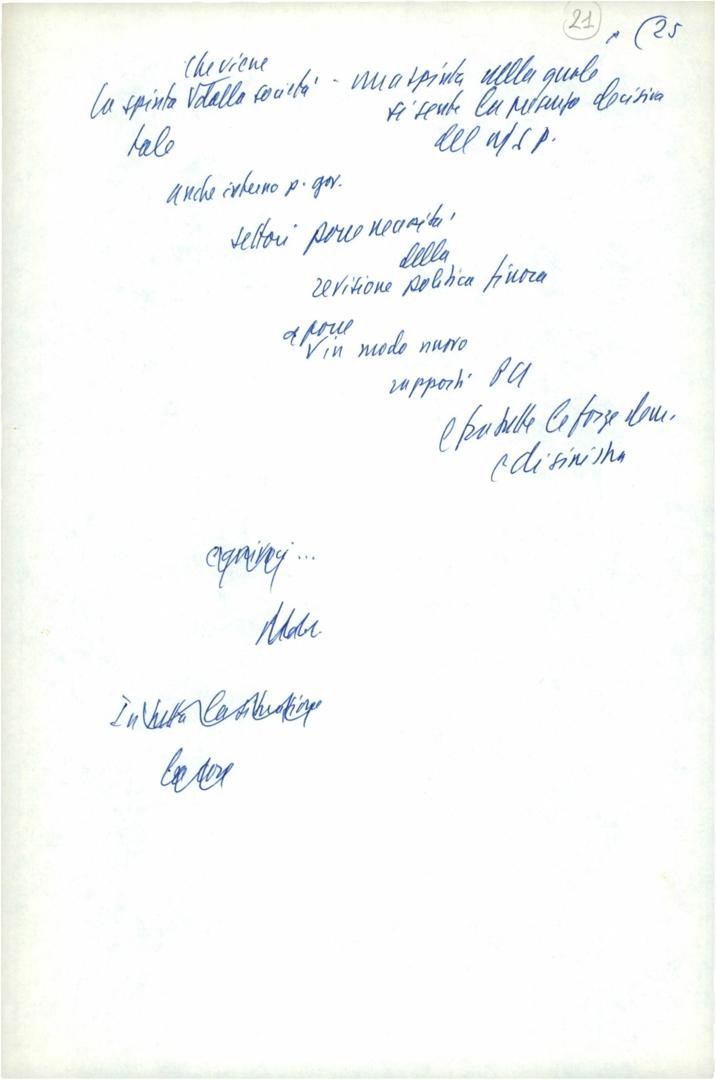 21
(25
che viene
la spinta V dalla società - una spinta nella quale
si sente la presenza decisiva
tale
del n/s p.
anche interno p. gov.
settori pone necessità
della
revisione politica finora
e porre
V in modo nuovo
rapporti PCI
e tra tutte le forze dem.
e di sinistra
In tutta la situazione